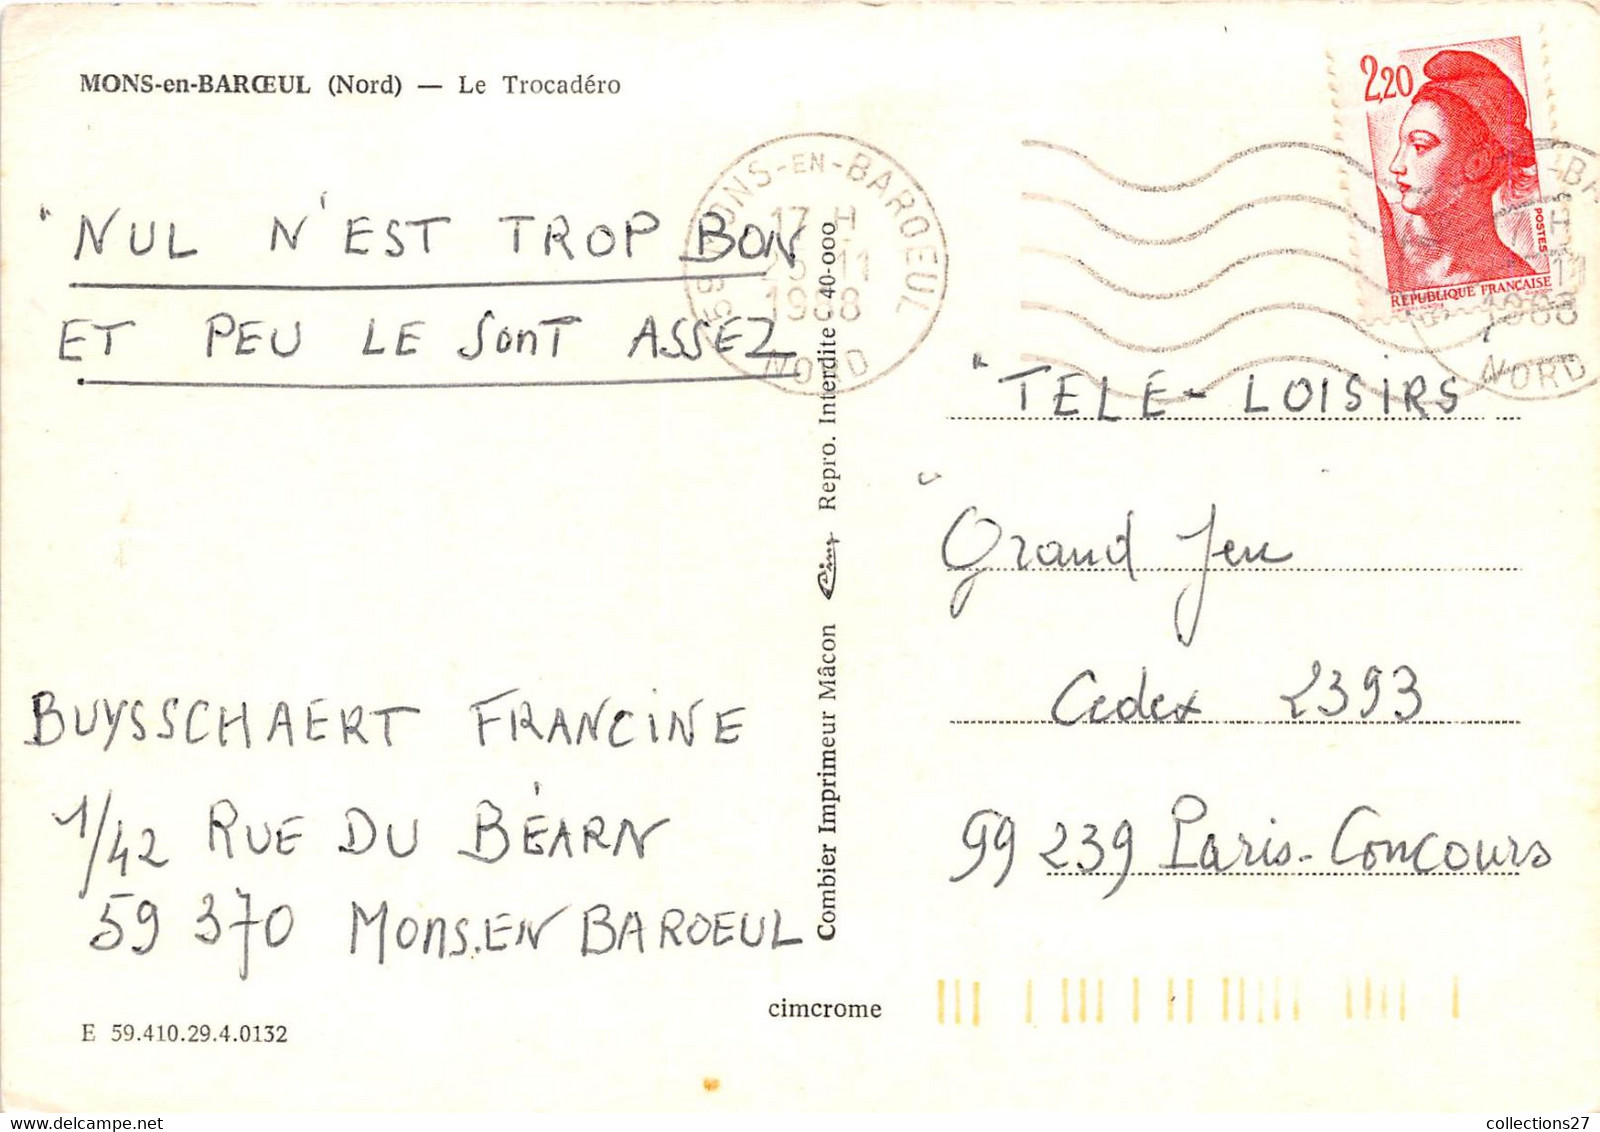 MONS-en-BARŒUL (Nord) — Le Trocadéro
" NUL N'EST TROP BON
ET PEU LE SONT ASSEZ
BUYSSCHAERT FRANCINE
1/42 RUE DU BÉARN
59 370 MONS.EN BAROEUL
E 59.410.29.4.0132
cimcrome
Combier Imprimeur Mâcon Cim Repro. Interdite 40-000
59 MONS-EN-BAROEUL
17 H
11
1988
NORD
2,20
POSTES
REPUBLIQUE FRANÇAISE
1988
NORD
" TELE - LOISIRS
" Grand Jeu
Cedex 2393
99 239 Paris-Concours
collections27